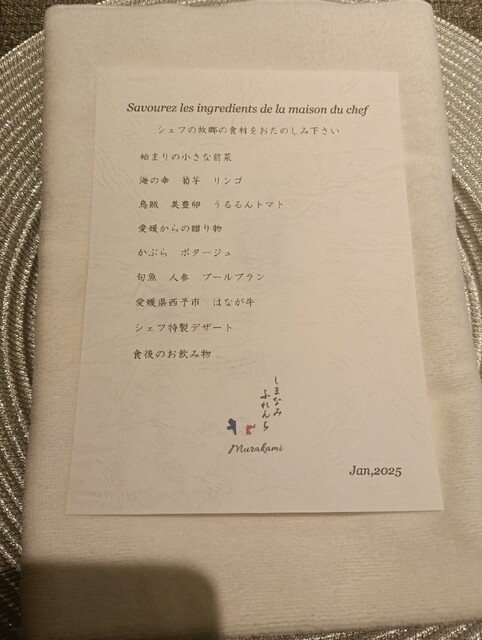 Savourez les ingredients de la maison du chef
シェフの故郷の食材をおたのしみ下さい
始まりの小さな前菜
海の幸　菊芋　リンゴ
烏賊　美豊卵　うるるんトマト
愛媛からの贈り物
かぶら　ポタージュ
旬魚　人参　ブールブラン
愛媛県西予市　はなが牛
シェフ特製デザート
食後のお飲み物
しまなみ
ふれんち
Murakami
Jan,2025